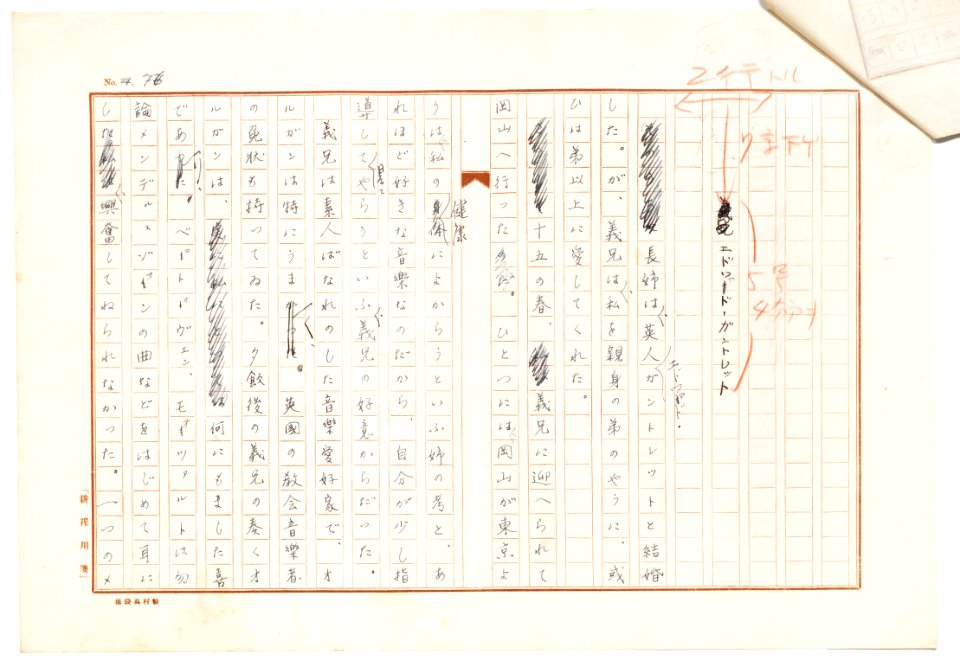 No. 4.
2イテトル
7字下ゲ
5号
4分アキ
エドワード・ガントレット
長姉は、英人エドワード・ガントレットと結婚
した。が、義兄は、私を親身の弟のやうに、或
ひは弟以上に愛してくれた。
十五の春、義兄に迎へられて
岡山へ行つた。ひとつには、岡山が東京よ
りは、私の健康によからうといふ姉の考と、あ
れほど好きな音樂なのだから、自分が少し指
導してやらうといふ、義兄の好意からだつた。
義兄は素人ばなれのした音樂愛好家で、オ
ルガンは特にうまく、英國の教会音樂者
の免状も持つてゐた。夕飯後の義兄の奏くオ
ルガンは、何にもました喜
であり、ベートーヴェン、モーツァルトは勿
論メンデルスゾーンの曲などをはじめて耳に
した、興奮してねられなかつた。一つのメ